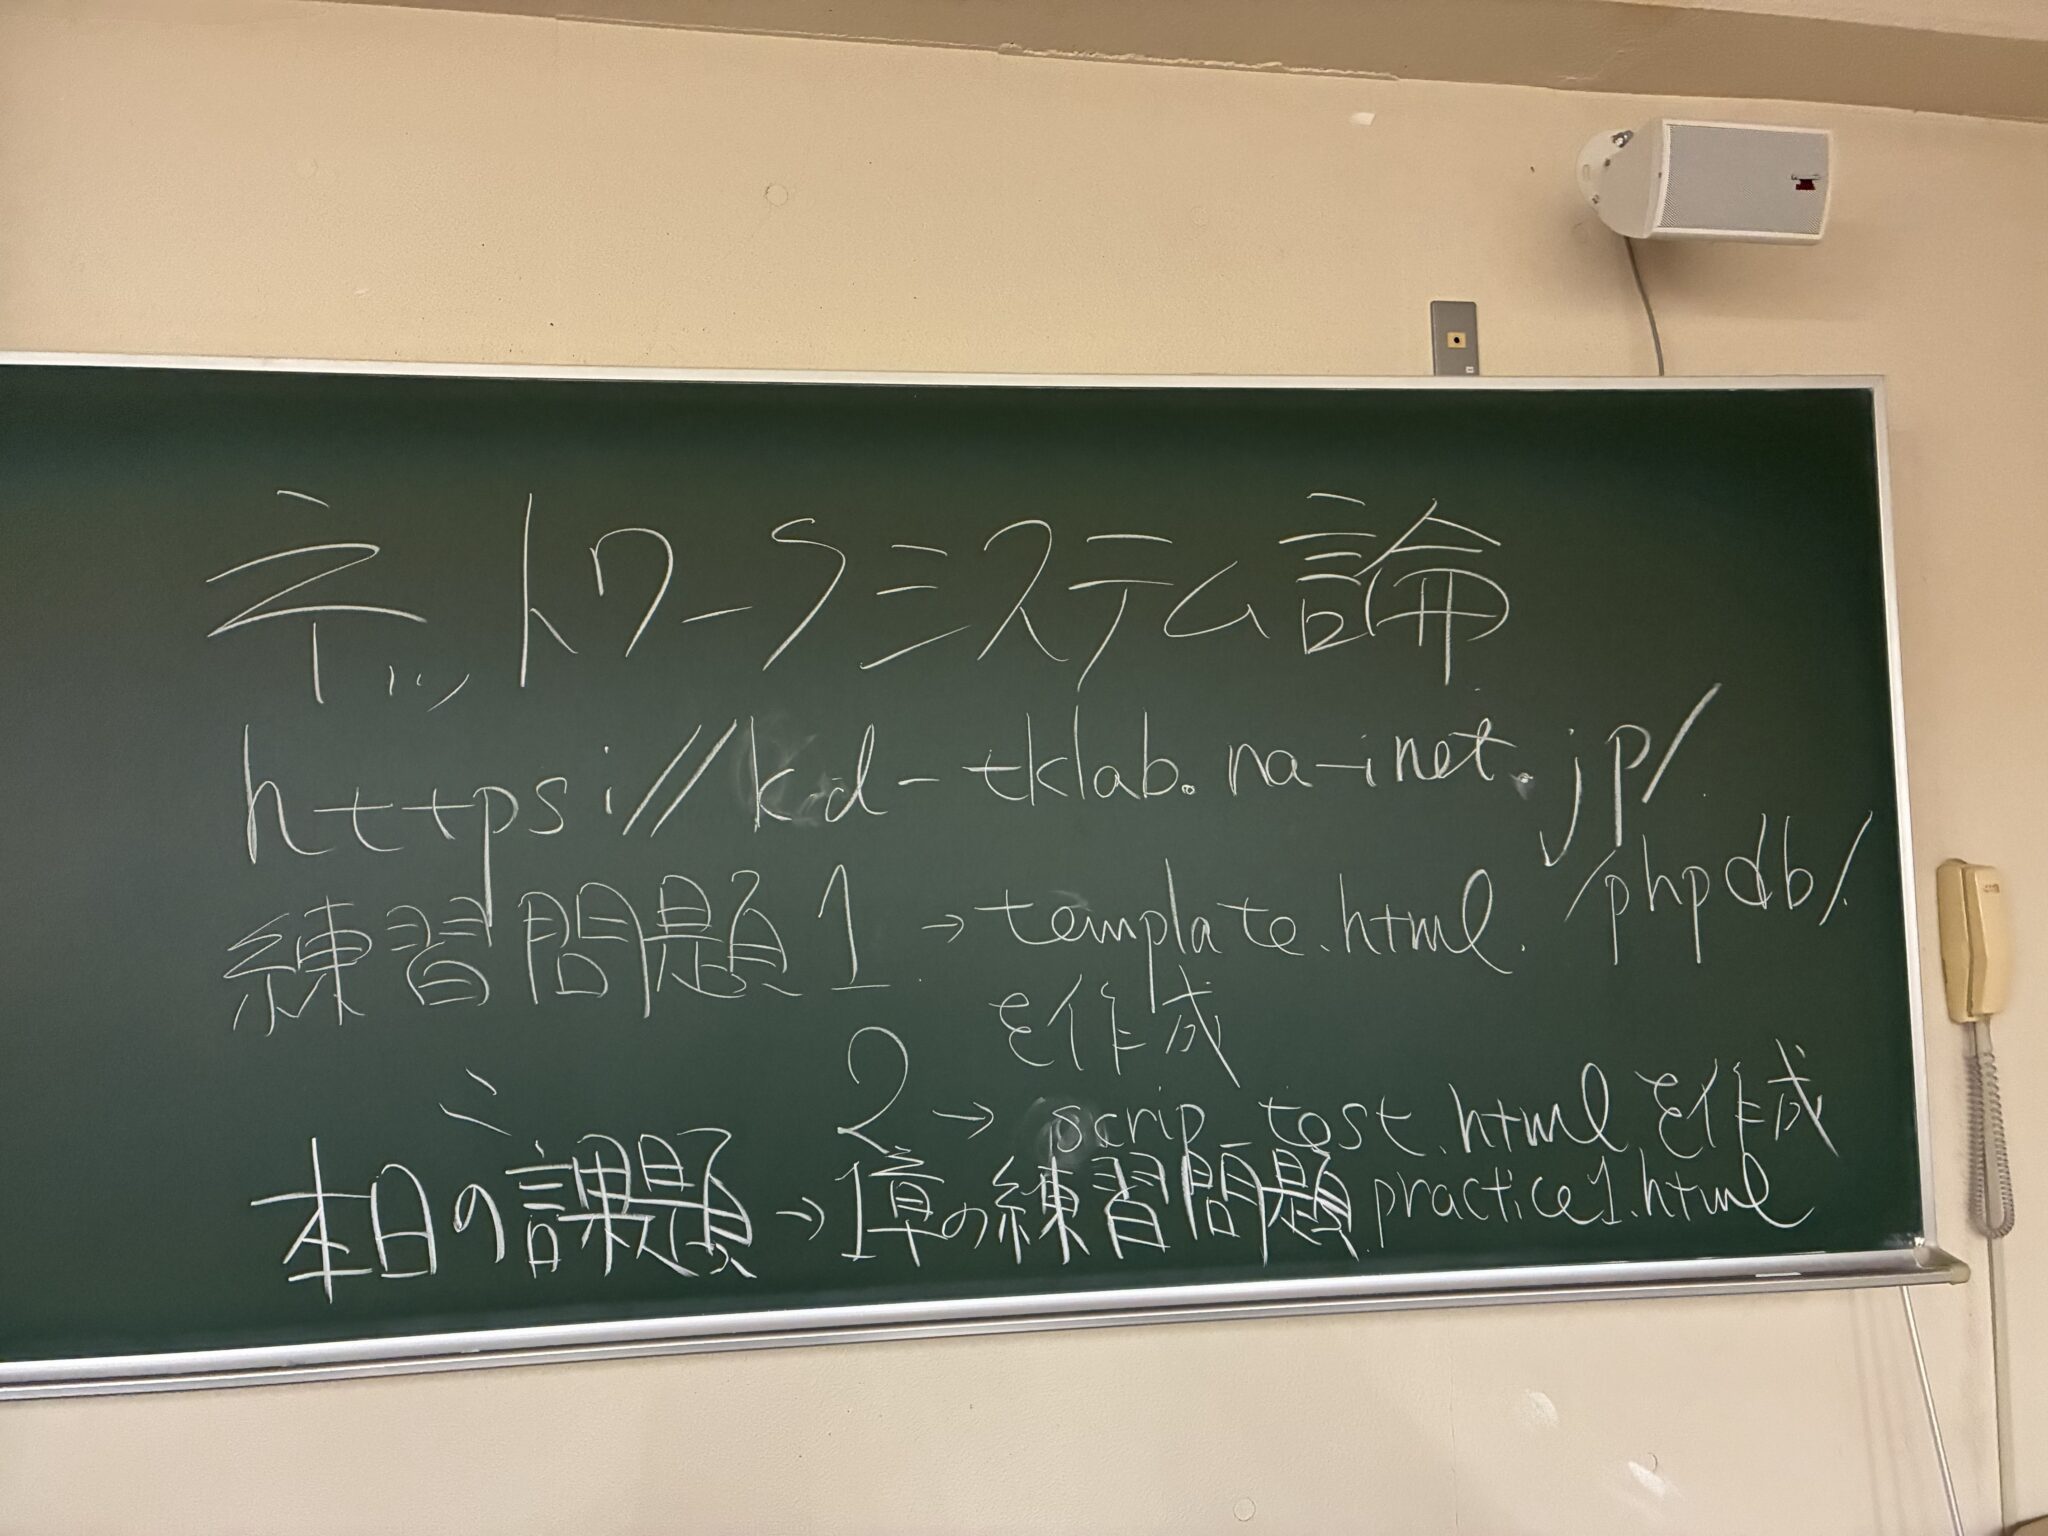 ネットワークシステム論
https://kd-tklab.na-inet.jp/
/phpdb/
練習問題1 → template.html
を作成
2 → scrip_test.html を作成
本日の課題 → 1章の練習問題 practice1.html